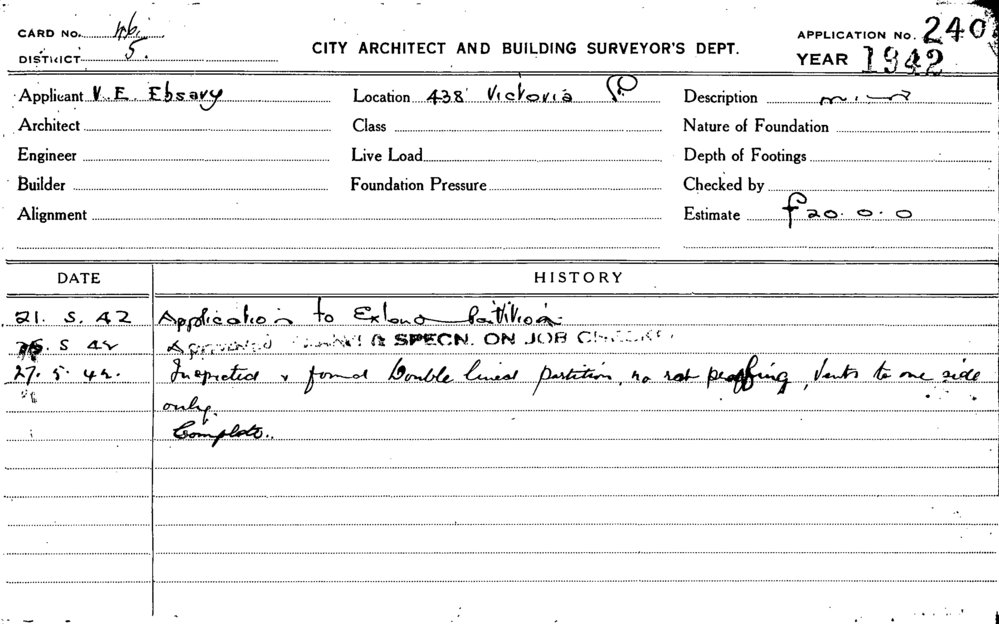 CARD No.
DISTRICT 5.
CITY ARCHITECT AND BUILDING SURVEYOR'S DEPT.
APPLICATION No. 240
YEAR 1942
Applicant V. E. Ebsary Location 438 Victoria Description
Architect Class Nature of Foundation
Engineer Live Load Depth of Footings
Builder Foundation Pressure Checked by
Alignment Estimate £20. 0. 0
DATE HISTORY
21. 5. 42 Application to Extend Partition
5 42 Approved & SPECN. ON JOB CHECKED
27. 5. 42. Inspected & found Double lined partition, no rat proofing, Vents to one side
only.
Complete.